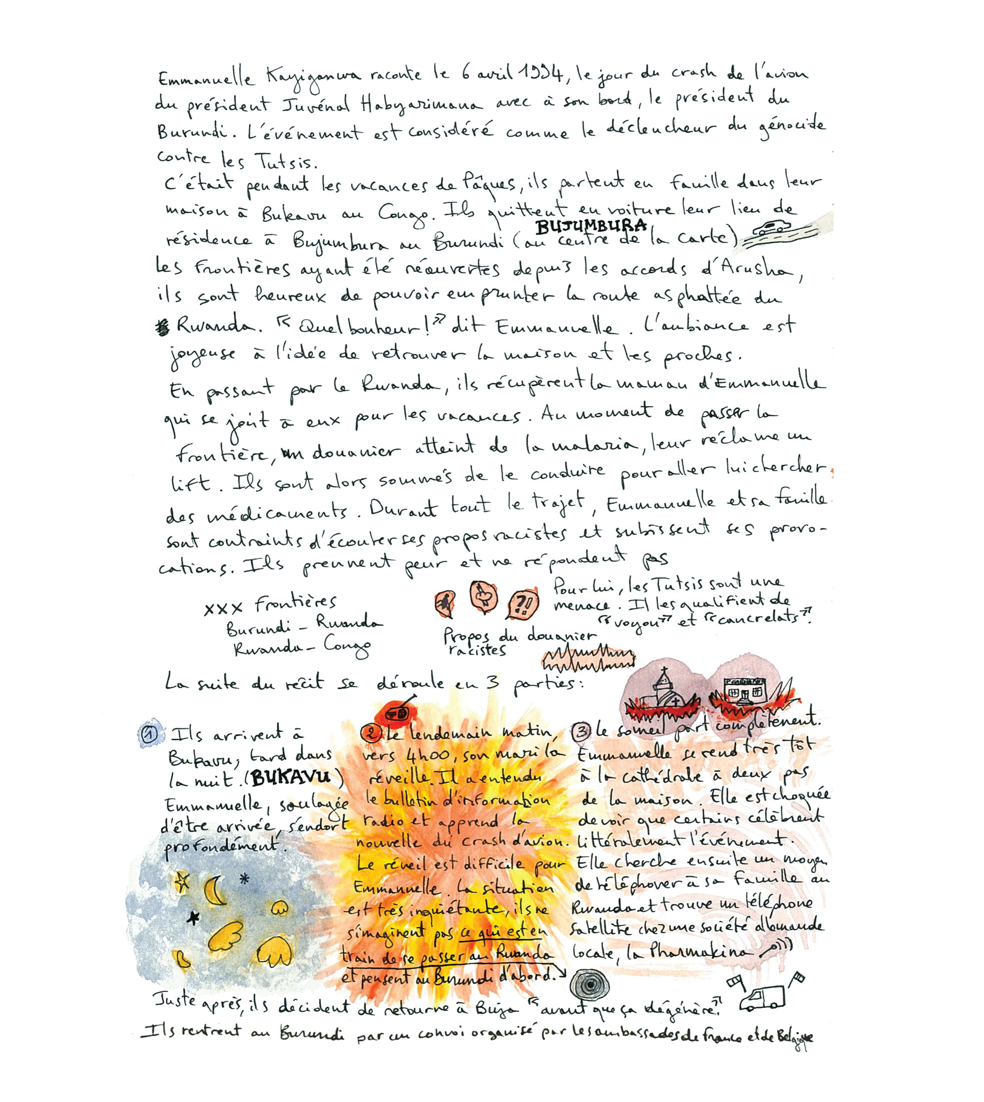 Emmanuelle Kayiganwa raconte le 6 avril 1994, le jour du crash de l'avion
du président Juvénal Habyarimana avec à son bord, le président du
Burundi. L'événement est considéré comme le déclencheur du génocide
contre les Tutsis.
C'était pendant les vacances de Pâques, ils partent en famille dans leur
maison à Bukavu au Congo. Ils quittent en voiture leur lieu de
BUJUMBURA
résidence à Bujumbura au Burundi (au centre de la carte)
Les frontières ayant été réouvertes depuis les accords d'Arusha,
ils sont heureux de pouvoir emprunter la route asphaltée du
Rwanda. "Quel bonheur!" dit Emmanuelle. L'ambiance est
joyeuse à l'idée de retrouver la maison et les proches.
En passant par le Rwanda, ils récupèrent la maman d'Emmanuelle
qui se joint à eux pour les vacances. Au moment de passer la
frontière, un douanier atteint de la malaria, leur réclame un
lift. Ils sont alors sommés de le conduire pour aller lui chercher
des médicaments. Durant tout le trajet, Emmanuelle et sa famille
sont contraints d'écouter ses propos racistes et subissent ses provo-
cations. Ils prennent peur et ne répondent pas
xxx Frontières
Burundi - Rwanda
Rwanda - Congo
?!
Propos du douanier
racistes
Pour lui, les Tutsis sont une
menace. Il les qualifient de
"voyou" et "cancrelats".
La suite du récit se déroule en 3 parties:
1 Ils arrivent à
Bukavu, tard dans
la nuit. (BUKAVU)
Emmanuelle, soulagée
d'être arrivée, s'endort
profondément.
2 Le lendemain matin,
vers 4h00, son mari la
réveille. Il a entendu
le bulletin d'information
radio et apprend la
nouvelle du crash d'avion.
Le réveil est difficile pour
Emmanuelle. La situation
est très inquiétante, ils ne
s'imaginent pas ce qui est en
train de se passer au Rwanda
et pensent au Burundi d'abord.
3 le someil part complètement.
Emmanuelle se rend très tôt
à la cathédrale à deux pas
de la maison. Elle est choquée
de voir que certains célèbrent
littéralement l'événement.
Elle cherche ensuite un moyen
de téléphoner à sa famille au
Rwanda et trouve un téléphone
satellite chez une société allemande
locale, la Pharmakina
Juste après, ils décident de retourne à Buja "avant que ça dégénère."
Ils rentrent au Burundi par un convoi organisé par les ambassades de France et de Belgique